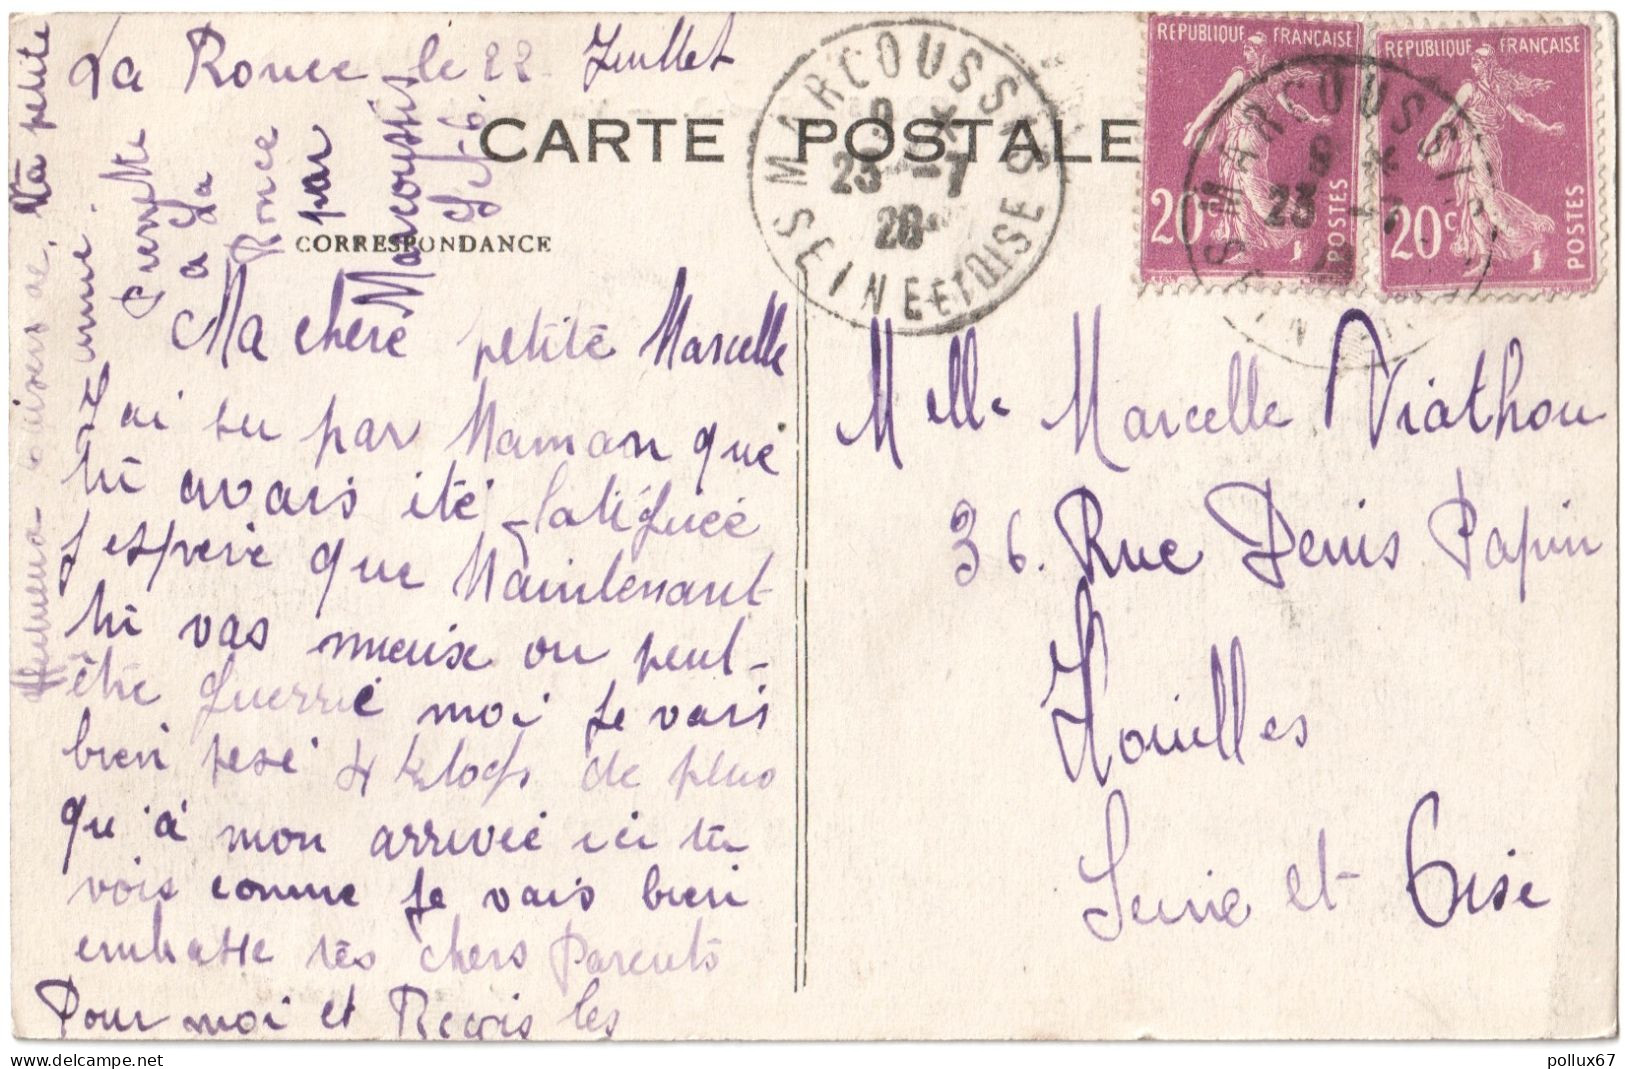 La Ronce le 22 Juillet
CARTE POSTALE
CORRESPONDANCE
Ma chère petite Marcelle
J'ai su par Maman que
tu avais été fatiguée
j'espère que Maintenant
tu vas mieux ou peut-
être guerrie moi je vais
bien pesé 4 kilogs de plus
qu'à mon arrivée ici tu
vois comme je vais bien
embasse tes chers Parents
Pour moi et Reçois les
baisers de ta petite
amie.
à La
Ronce
par
Marcoussis
S-et-O.
MARCOUSSIS
23 -7
28
SEINE ET OISE
REPUBLIQUE FRANÇAISE
20c
POSTES
REPUBLIQUE FRANÇAISE
20c
POSTES
MARCOUSSIS
23 -7
Melle Marcelle Viathou
36. Rue Denis Papin
Houilles
Seine et Oise
pollux67